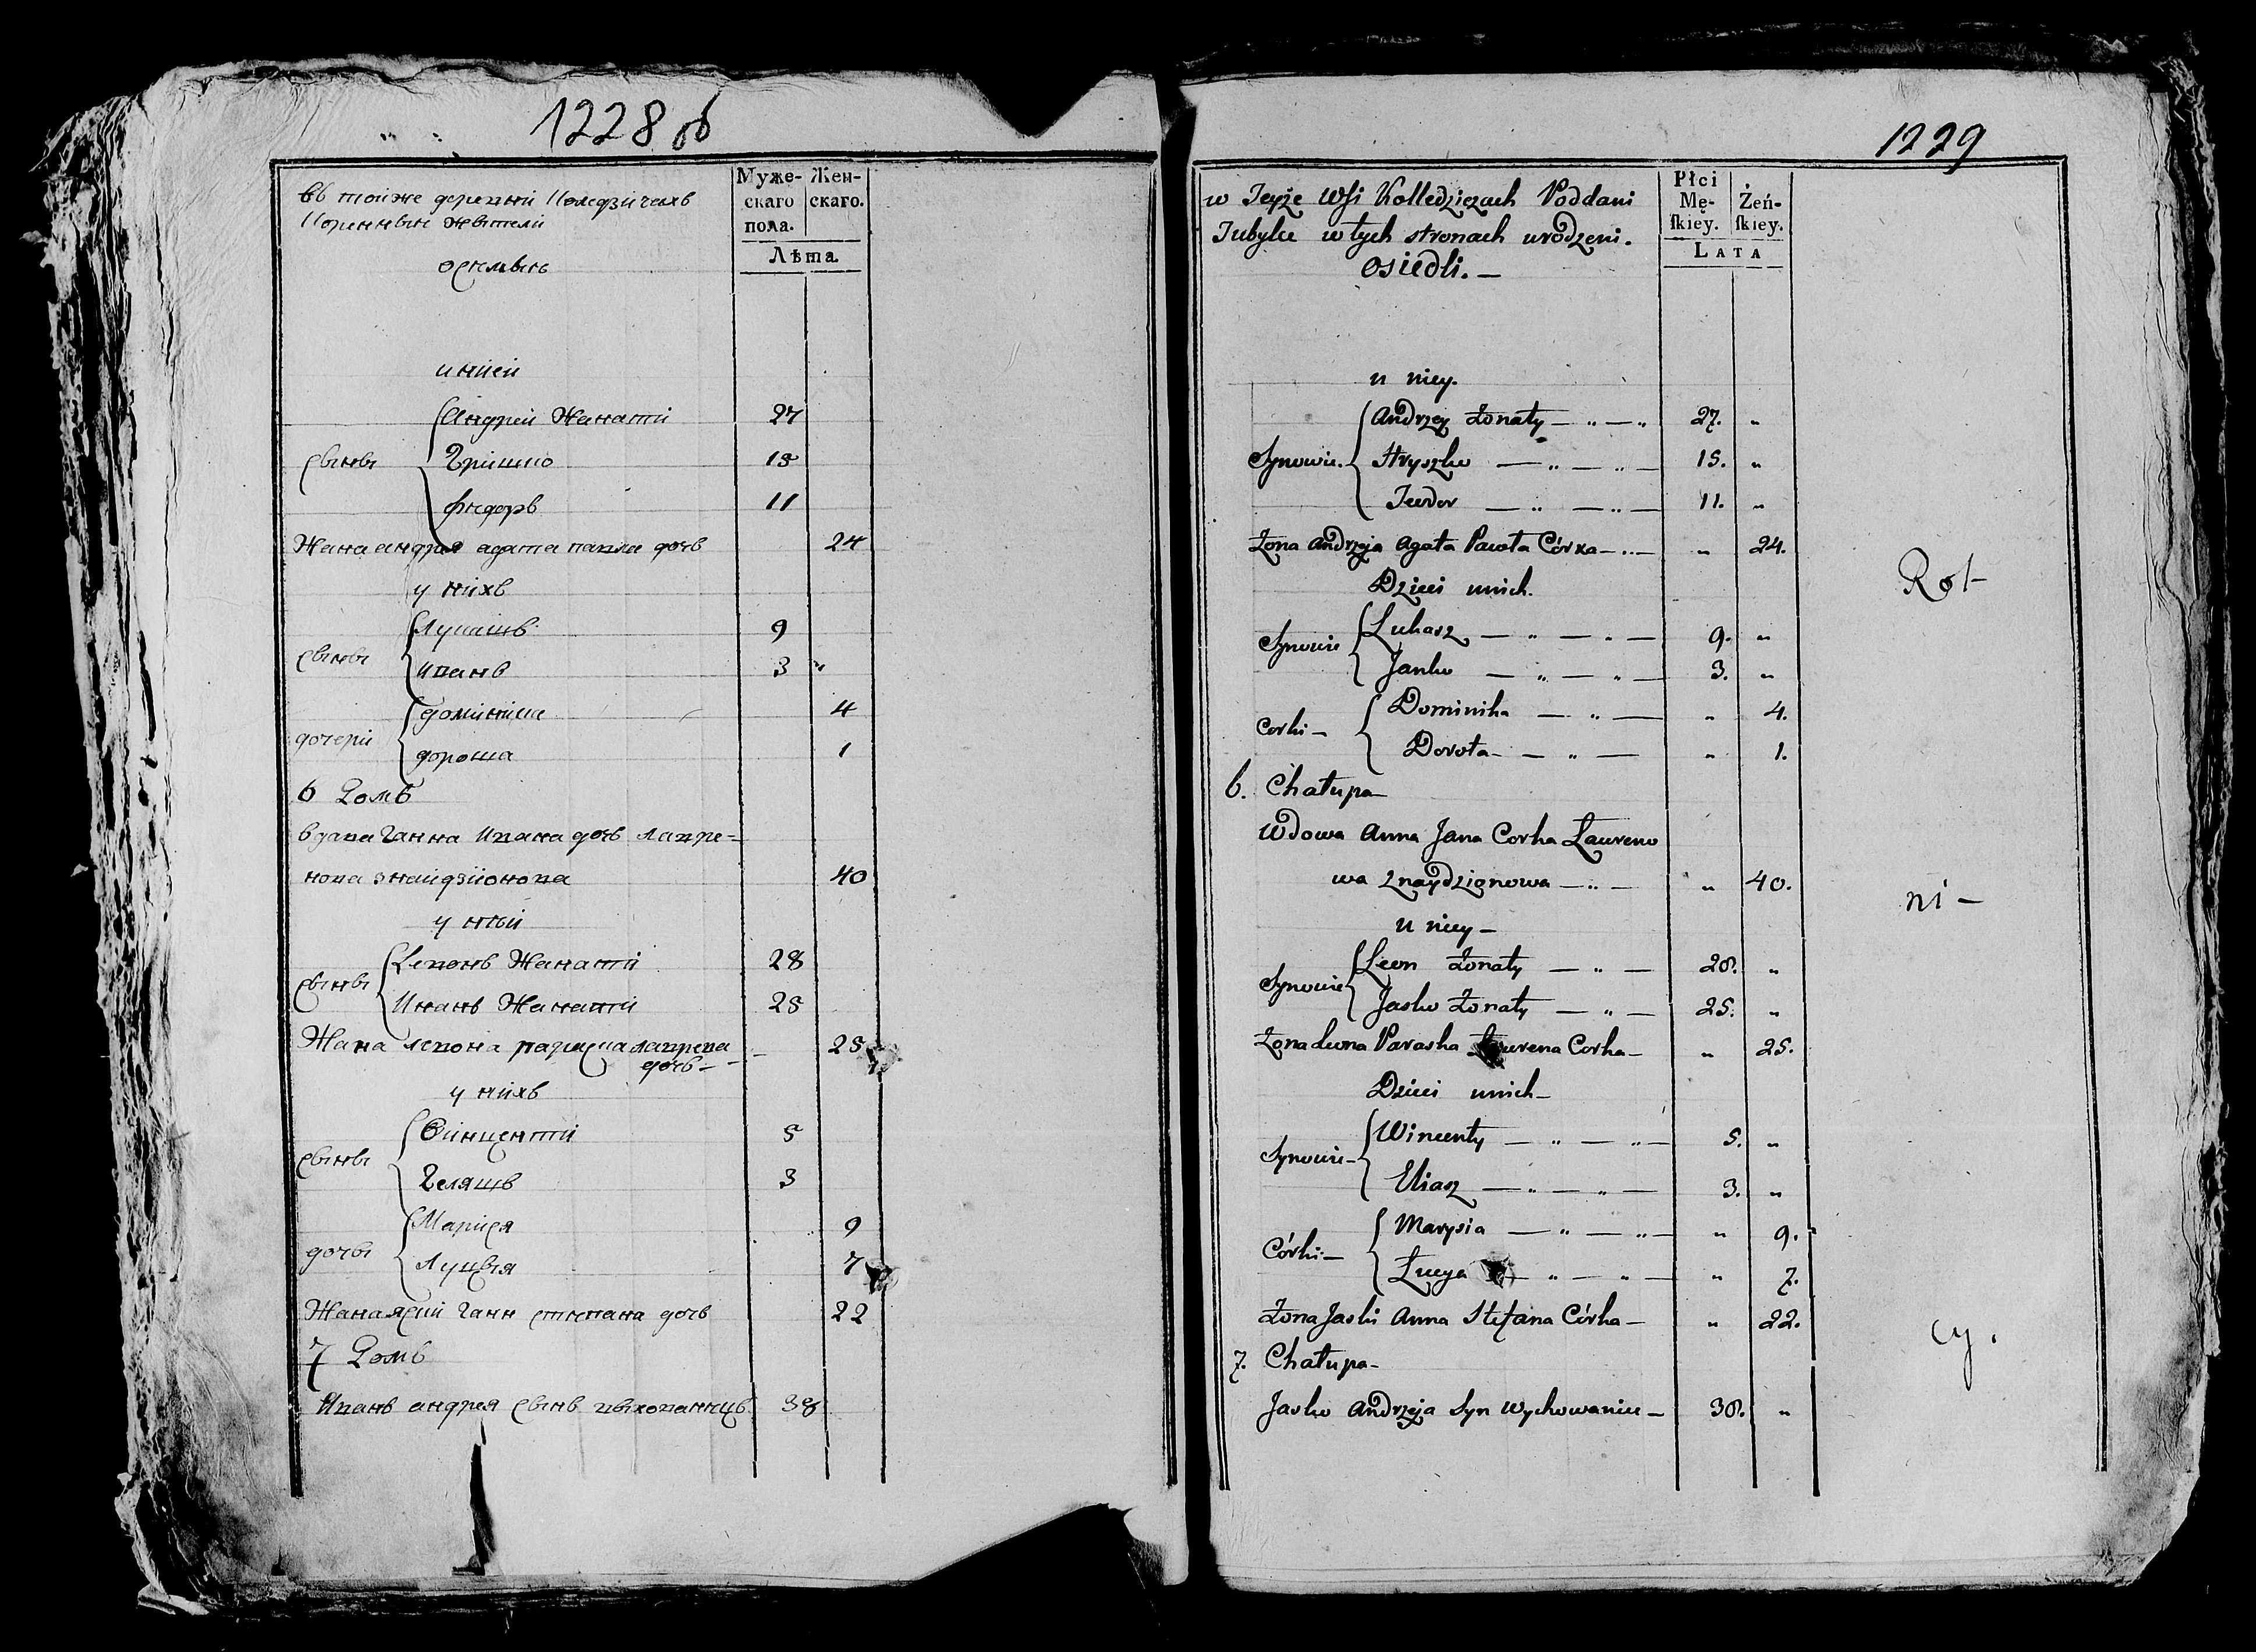 1228 об
Муже-
скаго
пола.
Жен-
скаго.
Лѣта
въ тойже деревни Коледзичахъ
Коренныи жители
оселыѣ
у нiей
сыны
Андрей Жанатiй 27
Гришко 15
Федоръ 11
Жана андрея агата павла дочь 24
у нiхъ
сыны
Лукашъ 9
Иванъ 3 "
дочерiй
домiнiка 4
дорота 1
6 Домъ
вдава Ганна Ивана дочь лавре-
нова знайдзiонова 40
у нѣй
сыны
Левонъ Жанатiй 28
Иванъ Жанатiй 25
Жана левона параска лаврена
дочь - 25
у нiхъ
сыны
Вiнцентiй 5
Геляшъ 3
дочы
Марiся 9
Луцыя 7
Жана яски Ганн степана дочь 22
7 Домъ
Иванъ андрея сынъ выхованецъ 38
1229
Płci
Mę-
skiey.
Żeń-
skiey.
LATA
w Teyże Wsi Kolledziczach Poddani
Tubylce w tych stronach urodzeni.
Osiedli. —
u niey.
Synowie.
Andrzey Żonaty — „ — „ 27. „
Hryszko — „ — „ — 15. „
Teodor — „ — „ — 11. „
Żona Andrzeja Agata Pawła Córka — „ — „ 24.
Dzieci unich.
Synowie
Łukasz — „ — „ — 9. „
Janko — „ — „ — 3. „
Corki —
Dominika — „ — „ 4.
Dorota — — „ — „ 1.
6. Chałupa —
Wdowa Anna Jana Corka Ławreno
wa Znaydzionowa — „ — „ 40.
u niey —
Synowie
Leon Żonaty — „ — 28. „
Jaśko Żonaty — „ — 25. „
Żona Leona Paraska Ławrena Corka — „ 25.
Dzieci unich —
Synowie —
Wincenty — „ — „ — 5. „
Eliasz — „ — „ — 3. „
Córki —
Marysia — „ — „ — „ 9.
Łucya — „ — „ — „ 7.
Żona Jaśki Anna Stefana Córka — „ 22.
7. Chałupa —
Jaśko Andrzeja Syn Wychowaniec — 38. „
Rot-
ni-
cy.